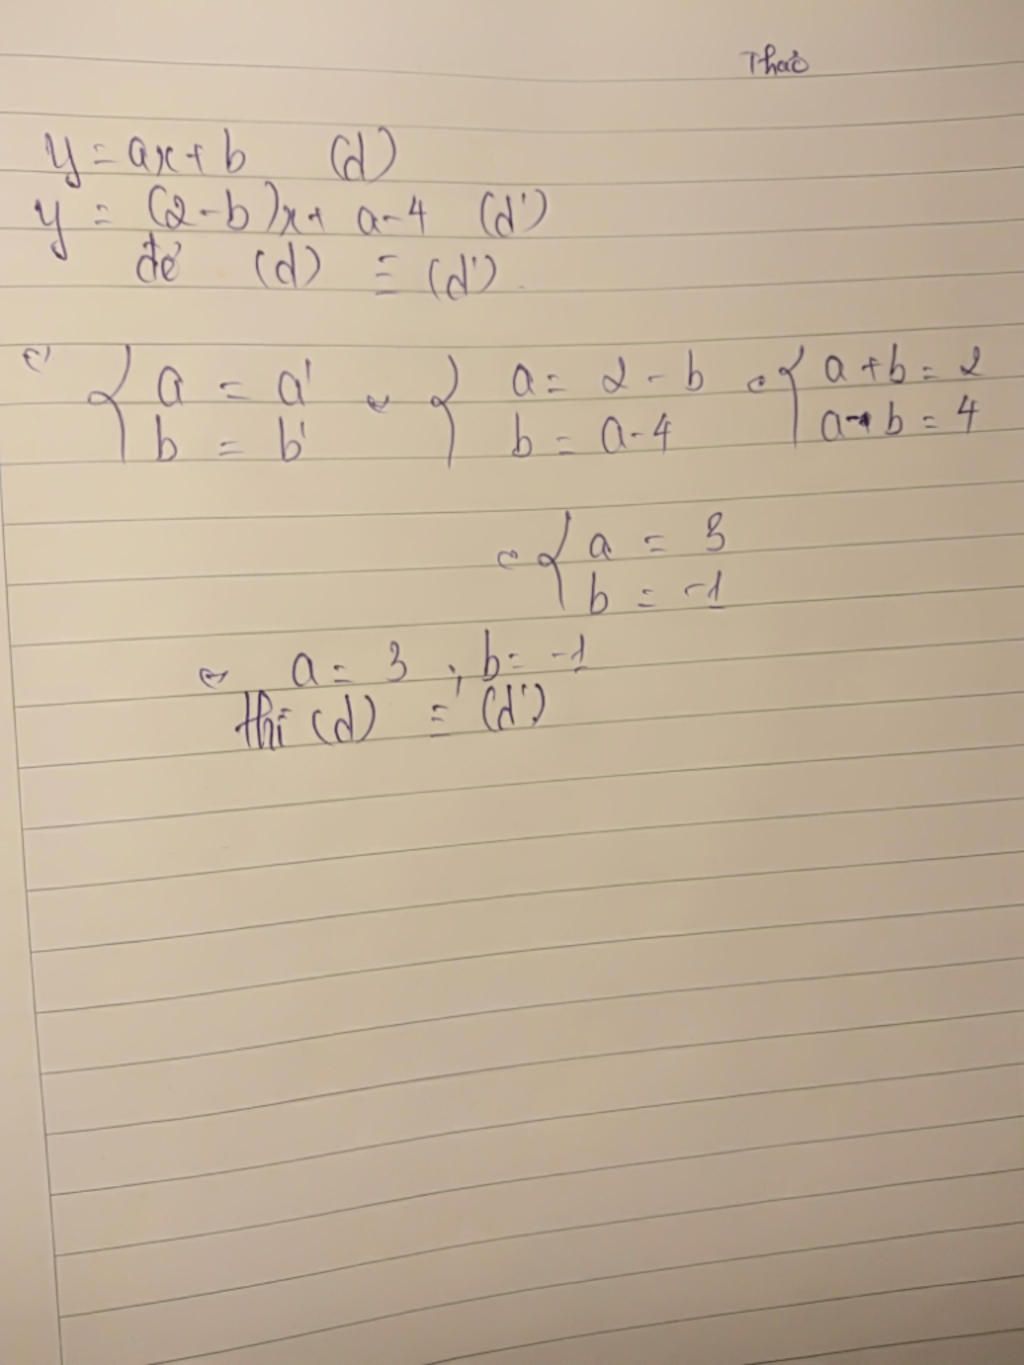 Thảo
y = ax + b (d)
y = (2 - b)x + a - 4 (d')
để (d) ≡ (d').
⇔ { a = a' ⇔ { a = 2 - b ⇔ { a + b = 2
b = b' b = a - 4 a - b = 4
⇔ { a = 3
b = -1
⇔ a = 3 ; b = -1
thì (d) ≡ (d')